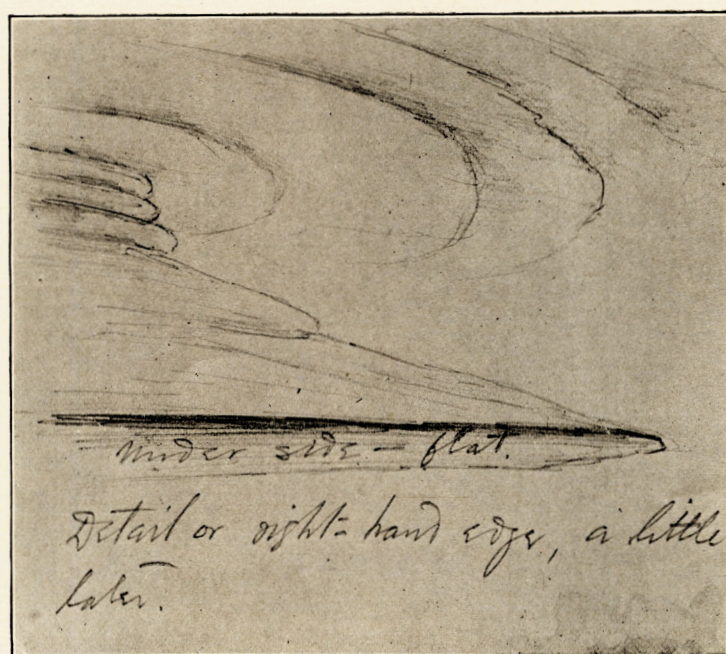 under side - flat.
Detail or right-hand edge, a little
later.